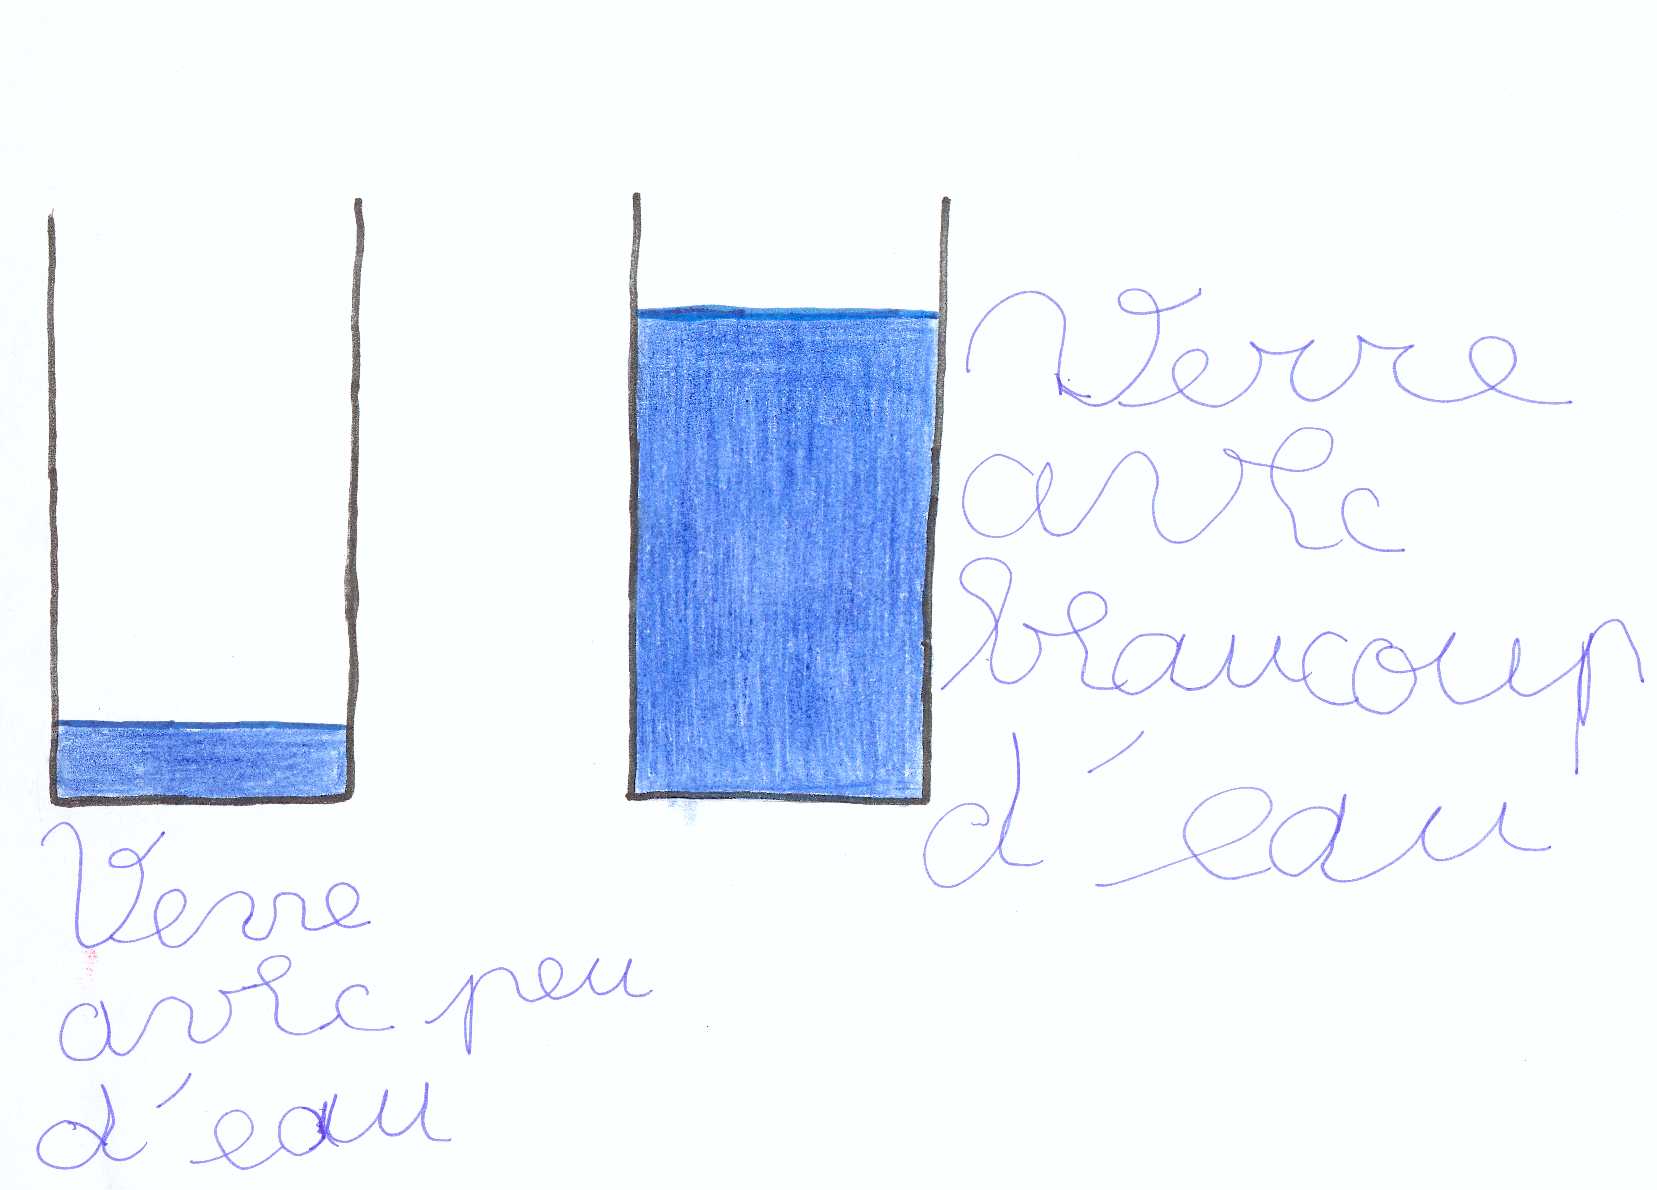 Verre
avec
beaucoup
d'eau
Verre
avec peu
d'eau